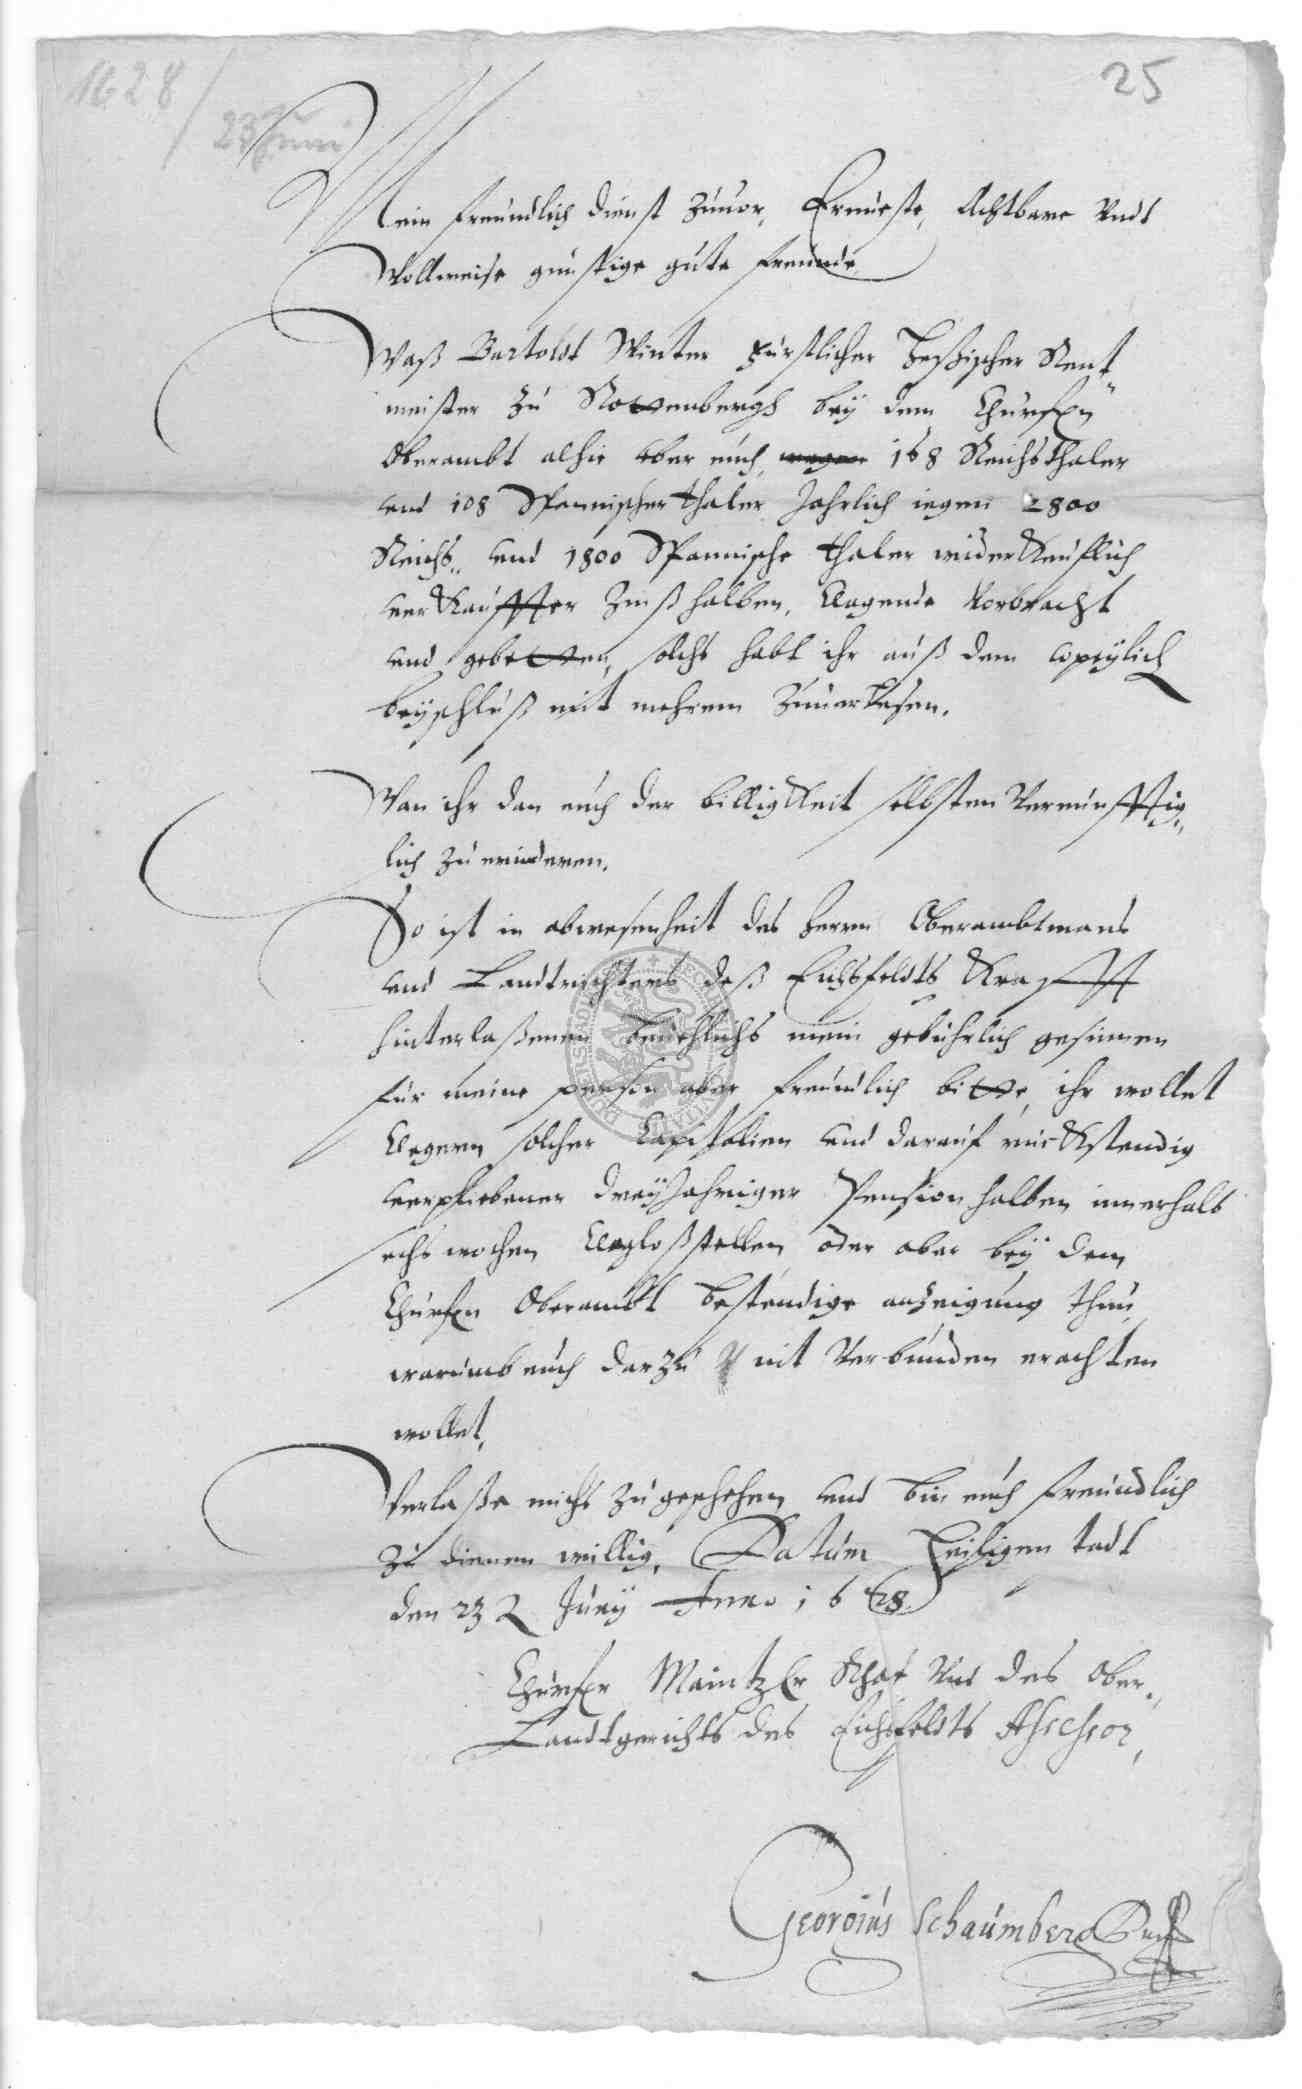 1628 / 25
23 Juni
Mein freundlich dienst zuuor, Ernueste, Achtbare Undt
Wollweise gunstige gute freunde,
Waß Bartoldt Winter Fürstlicher Heßischer Rent
meister zu Rottenbergh bey dem Churfn
Oberambt alhie vber euch, wegen 168 Reichsthaler
und 108 Spannischer thaler Jahrlich iegen 2800
Reichs.. und 1800 Spannische thaler widerkeuflich
verkauffter Zinß halben, klagende Vorbracht
und gebetten, solchs habt ihr auß dem copeylich
beyschluß mit mehrem zuuerlesen.
Wan ihr dan euch der billigkeit selbsten Vernunfftig,,
lich zu erinderen.
So ist in abwesenheit des Herrn Oberambtmans
und Landtrichters deß Eichsfeldts Krafft
hinterlaßenen beuehlichs mein gebührlich gesinnen
für meine person aber freundlich bitte, ihr wollet
klegern solcher Capitalien und darauf ruckstendig
verpliebener dreyJahriger Pension halben innerhalb
sechs wochen klagloßstellen, oder aber bey dem
Churfn Oberambt bestendige anzeigung thun,
warumb euch darzu nit Verbunden erachten
wollet,
Verlaße michs zu geschehen, und bin euch freundlich
zu dienen willig, Datum Heiligenstadt
den 23 Juny Anno 1628
Churfr Maintzer Rhat Und des Ober..
Landtgerichts des Eichsfeldts Assessor,
Georgius Schaumberg